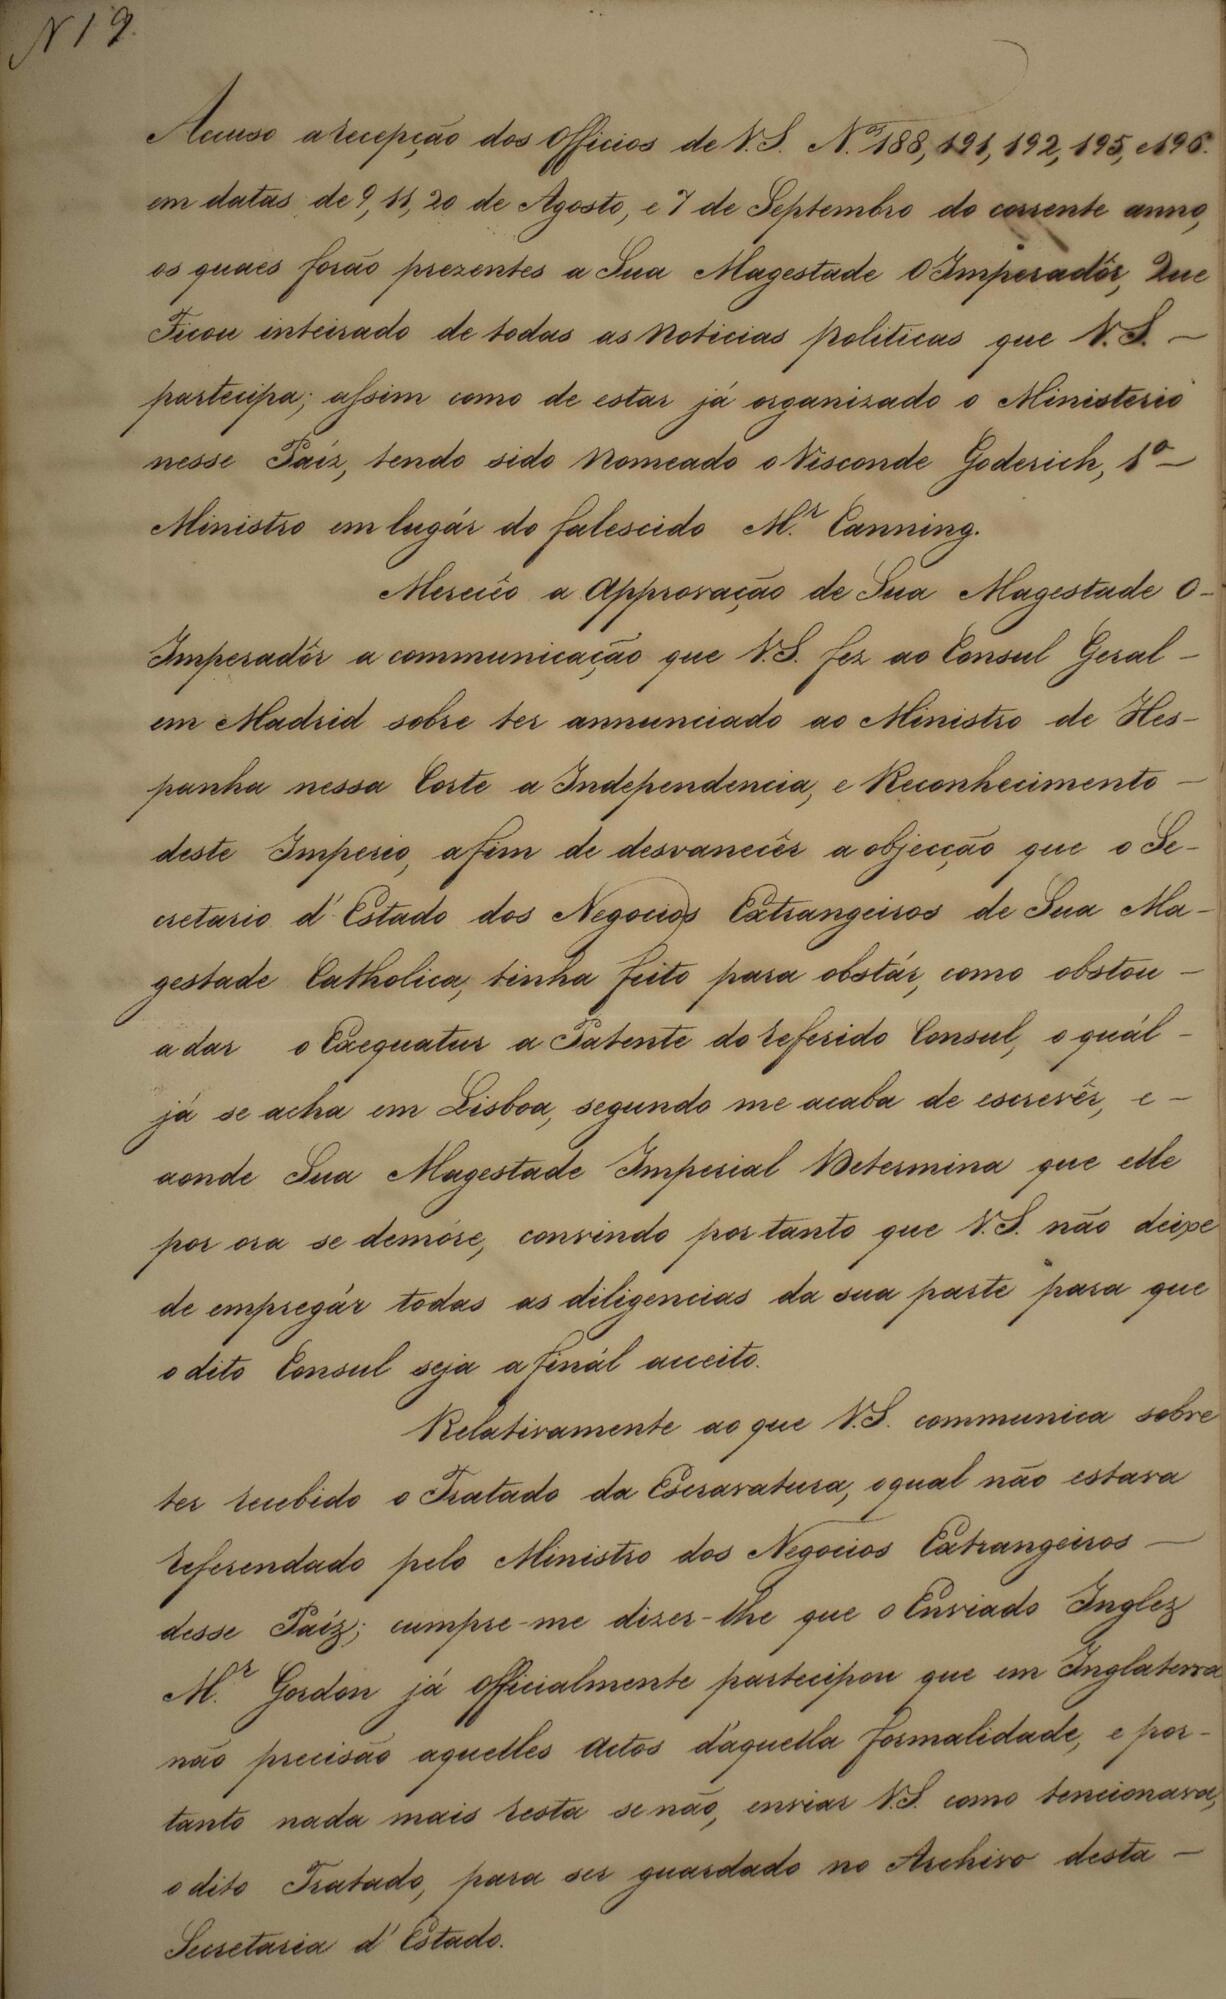 N 19.
Accuso a recepção dos Officios de V.S. N.os 188, 191, 192, 195, e 196.
em datas de 9, 11, 20 de Agosto, e 7 de Septembro do corrente anno,
os quaes forão prezentes a Sua Magestade O Imperadôr, Que
Ficou inteirado de todas as Noticias politicas que V.S. –
partecipa; assim como de estar já organizado o Ministerio
nesse Paiz, tendo sido Nomeado o Visconde Goderich, 1º –
Ministro em lugár do falescido M.r Canning.
Merecêo a Approvação de Sua Magestade O –
Imperadôr a communicação que V.S. fez ao Consul Geral –
em Madrid sobre ter annunciado ao Ministro de Hes-
panha nessa Corte a Independencia, e Reconhecimento –
deste Imperio, afim de desvanecêr a objecção que o Se-
cretario d'Estado dos Negocios Extrangeiros de Sua Ma-
gestade Catholica, tinha feito para obstár, como obstou –
a dar o Exequatur a Patente do referido Consul, o quál –
já se acha em Lisboa, segundo me acaba de escrevêr, e –
aonde Sua Magestade Imperial Determina que elle
por ora se demóre, convindo por tanto que V.S. não deixe
de empregár todas as diligencias da sua parte para que
o dito Consul seja a finál acceito.
Relativamente ao que V.S. communica sobre
ter recebido o Tratado da Escravatura, o qual não estava
referendado pelo Ministro dos Negocios Extrangeiros –
desse Paiz; cumpre-me dizer-lhe que o Enviado Inglez
M.r Gordon já officialmente partecipou que em Inglaterra
não precisão aquelles Actos d'aquella formalidade, e por-
tanto nada mais resta se não, enviar V.S. como tencionava,
o dito Tratado, para ser guardado no Archivo desta –
Secretaria d'Estado.